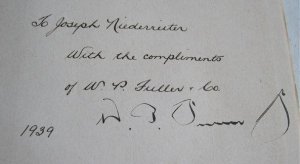 To Joseph Niederreiter
With the compliments
of W. P. Fuller & Co.
1939